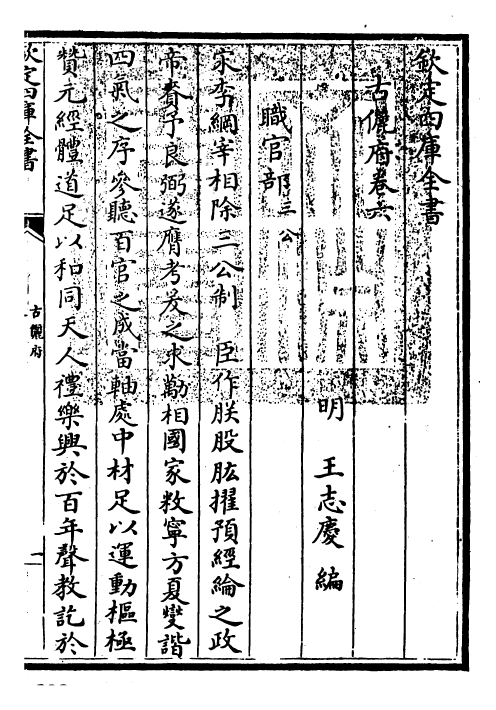 欽定四庫全書
古儷府卷六
明 王志慶 編
職官部三公
宋李綱宰相除三公制 臣作朕股肱擢預經綸之政
帝賚予良弼遂膺考爰之求勱相國家敉寧方夏燮諧
四氣之序參聽百官之成當軸處中材足以運動樞極
贊元經體道足以和同天人禮樂興於百年聲教訖於
欽定四庫全書
古儷府
一